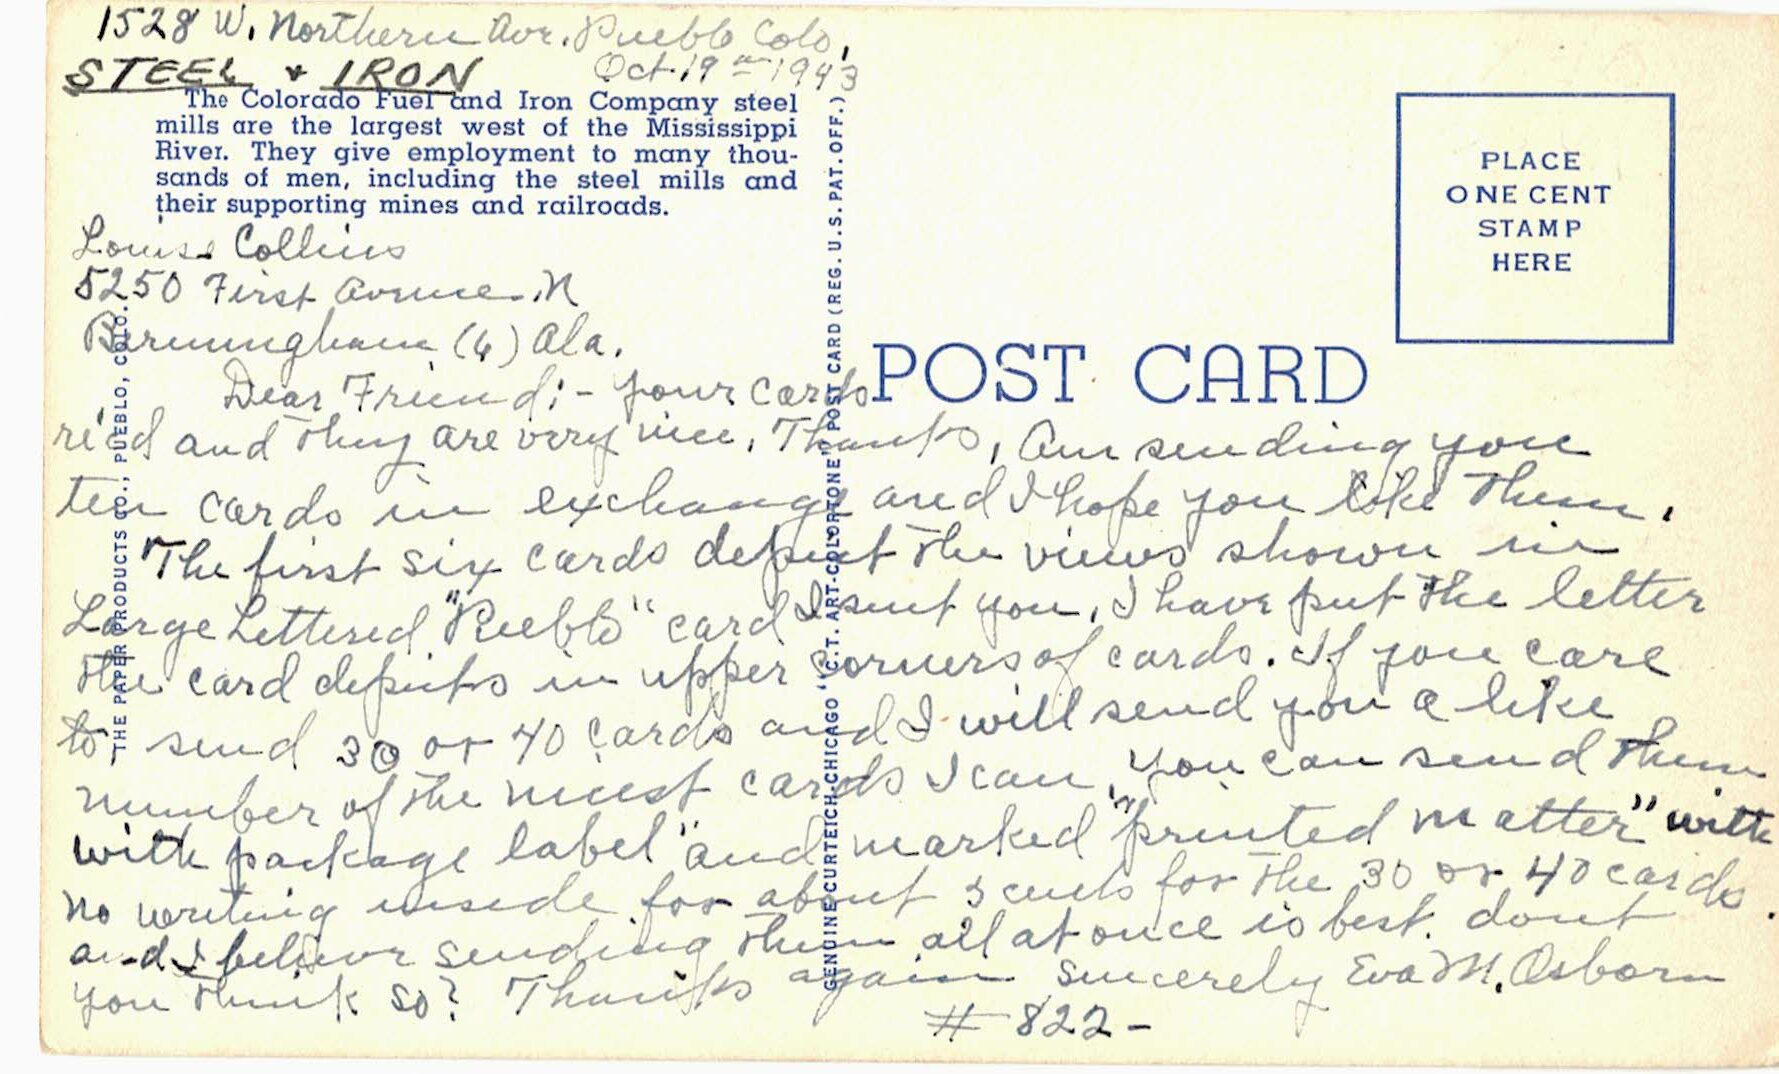 1528 W. Northern Ave. Pueblo Colo,
Oct. 19 th 1943
STEEL & IRON
The Colorado Fuel and Iron Company steel
mills are the largest west of the Mississippi
River. They give employment to many thou-
sands of men, including the steel mills and
their supporting mines and railroads.
Louise Collins
5250 First Avenue. N
Birmingham (6) Ala.
Dear Friend:- your cards
re'cd and they are very nice. Thanks, Am sending you
ten cards in exchange and I hope you like them.
The first six cards depict the views shown in
Large Lettered "Pueblo" card I sent you. I have put the letter
the card depicts in upper corners of cards. If you care
to send 30 or 40 cards and I will send you a like
number of the nicest cards I can, you can send them
with package label "and marked "printed matter" with
no writing inside for about 3 cents for the 30 or 40 cards.
and I believe sending them all at once is best. dont
you think so? Thanks again Sincerely Eva M. Osborn
# 822-
THE PAPER PRODUCTS CO., PUEBLO, COLO.
GENUINE CURTEICH-CHICAGO "C.T. ART-COLORTONE" POST CARD (REG. U.S. PAT. OFF.)
POST CARD
PLACE
ONE CENT
STAMP
HERE